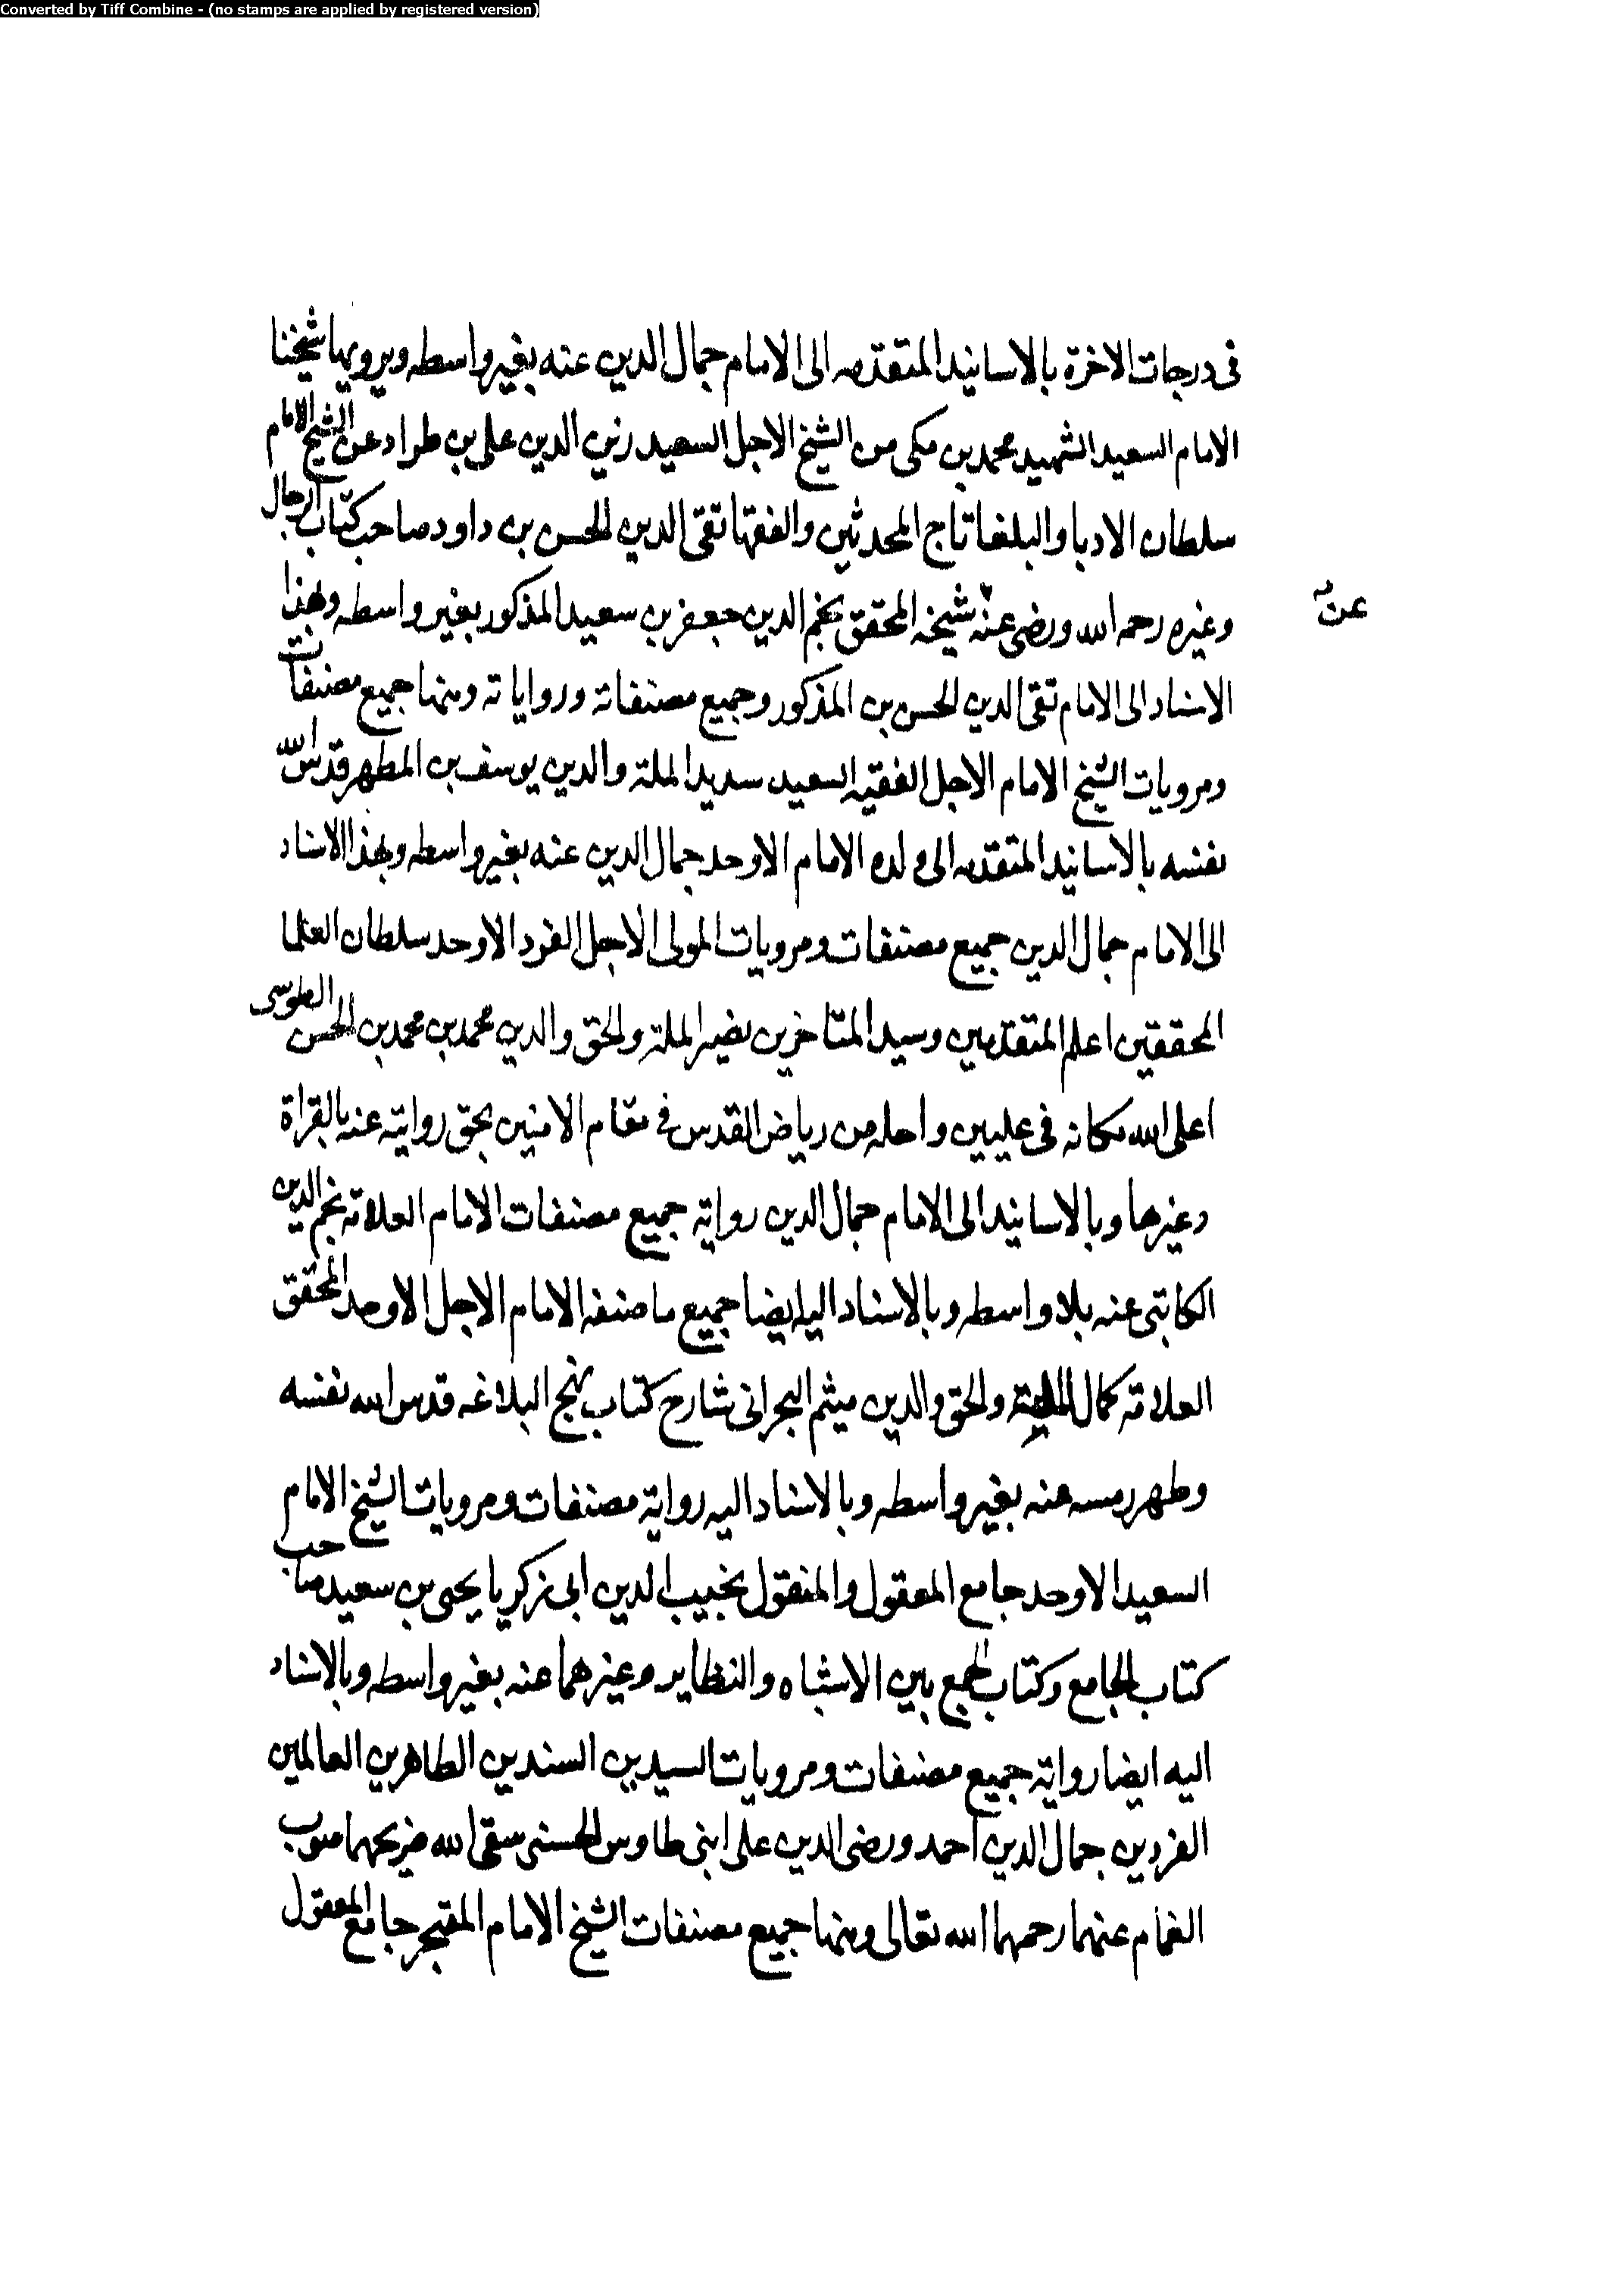 Converted by Tiff Combine - (no stamps are applied by registered version)
فى درجات الاخرة بالاسانيد المتقدمه الى الامام جمال الدين عنه بغير واسطه ويرويها شيخنا
الامام السعيد الشهيد محمد بن مكى من الشيخ الاجل السعيد رضى الدين على بن طراد عن الشيخ الامام
سلطان الادبا والبلغا تاج المحدثين والفقها تقى الدين الحسن بن داود صاحب كتاب الرجال
وغيره رحمه الله ورضى عنه شيخه المحقق نجم الدين جعفر بن سعيد المذكور بغير واسطه وبهذا
عن
الاسناد الى الامام تقى الدين الحسن بن المذكور وجميع مصنفاته ورواياته ومنها جميع مصنفات
ومرويات الشيخ الامام الاجل الفقيه السعيد سديد الملة والدين يوسف بن المطهر قدس الله
نفسه بالاسانيد المتقدمه الى ولده الامام الاوحد جمال الدين عنه بغير واسطه وبهذا الاسناد
الى الامام جمال الدين جميع مصنفات ومرويات المولى الاجل الفرد الاوحد سلطان العلما
المحققين اعلم المتقدمين وسيد المتاخرين نصير الملة والحق والدين محمد بن محمد بن الحسن الطوسى
اعلى الله مكانه فى عليين واحله من رياض القدس فى مقام الامنين بحق روايته عنه بالقراة
وغيرها وبالاسانيد الى الامام جمال الدين رواية جميع مصنفات الامام العلامة نجم الدين
الكاتبى عنه بلا واسطه وبالاسناد اليه ايضا جميع ما صنفه الامام الاجل الاوحد المحقق
العلامة كمال الملة والحق والدين ميثم البحرانى شارح كتاب نهج البلاغه قدس الله نفسه
وطهر رمسه عنه بغير واسطه وبالاسناد اليه رواية مصنفات ومرويات الشيخ الامام
السعيد الاوحد جامع المعقول والمنقول نجيب الدين ابى زكريا يحيى بن سعيد صاحب
كتاب الجامع وكتاب الجمع بين الاشباه والنظاير وغيرهما عنه بغير واسطه وبالاسناد
اليه ايضا رواية جميع مصنفات ومرويات السيدين السندين الطاهرين العالمين
الفردين جمال الدين احمد ورضى الدين على ابنى طاوس الحسنى سقى الله ضريحهما صوب
الغمام عنهما رحمهما الله تعالى ومنها جميع مصنفات الشيخ الامام المتبحر جامع المعقول